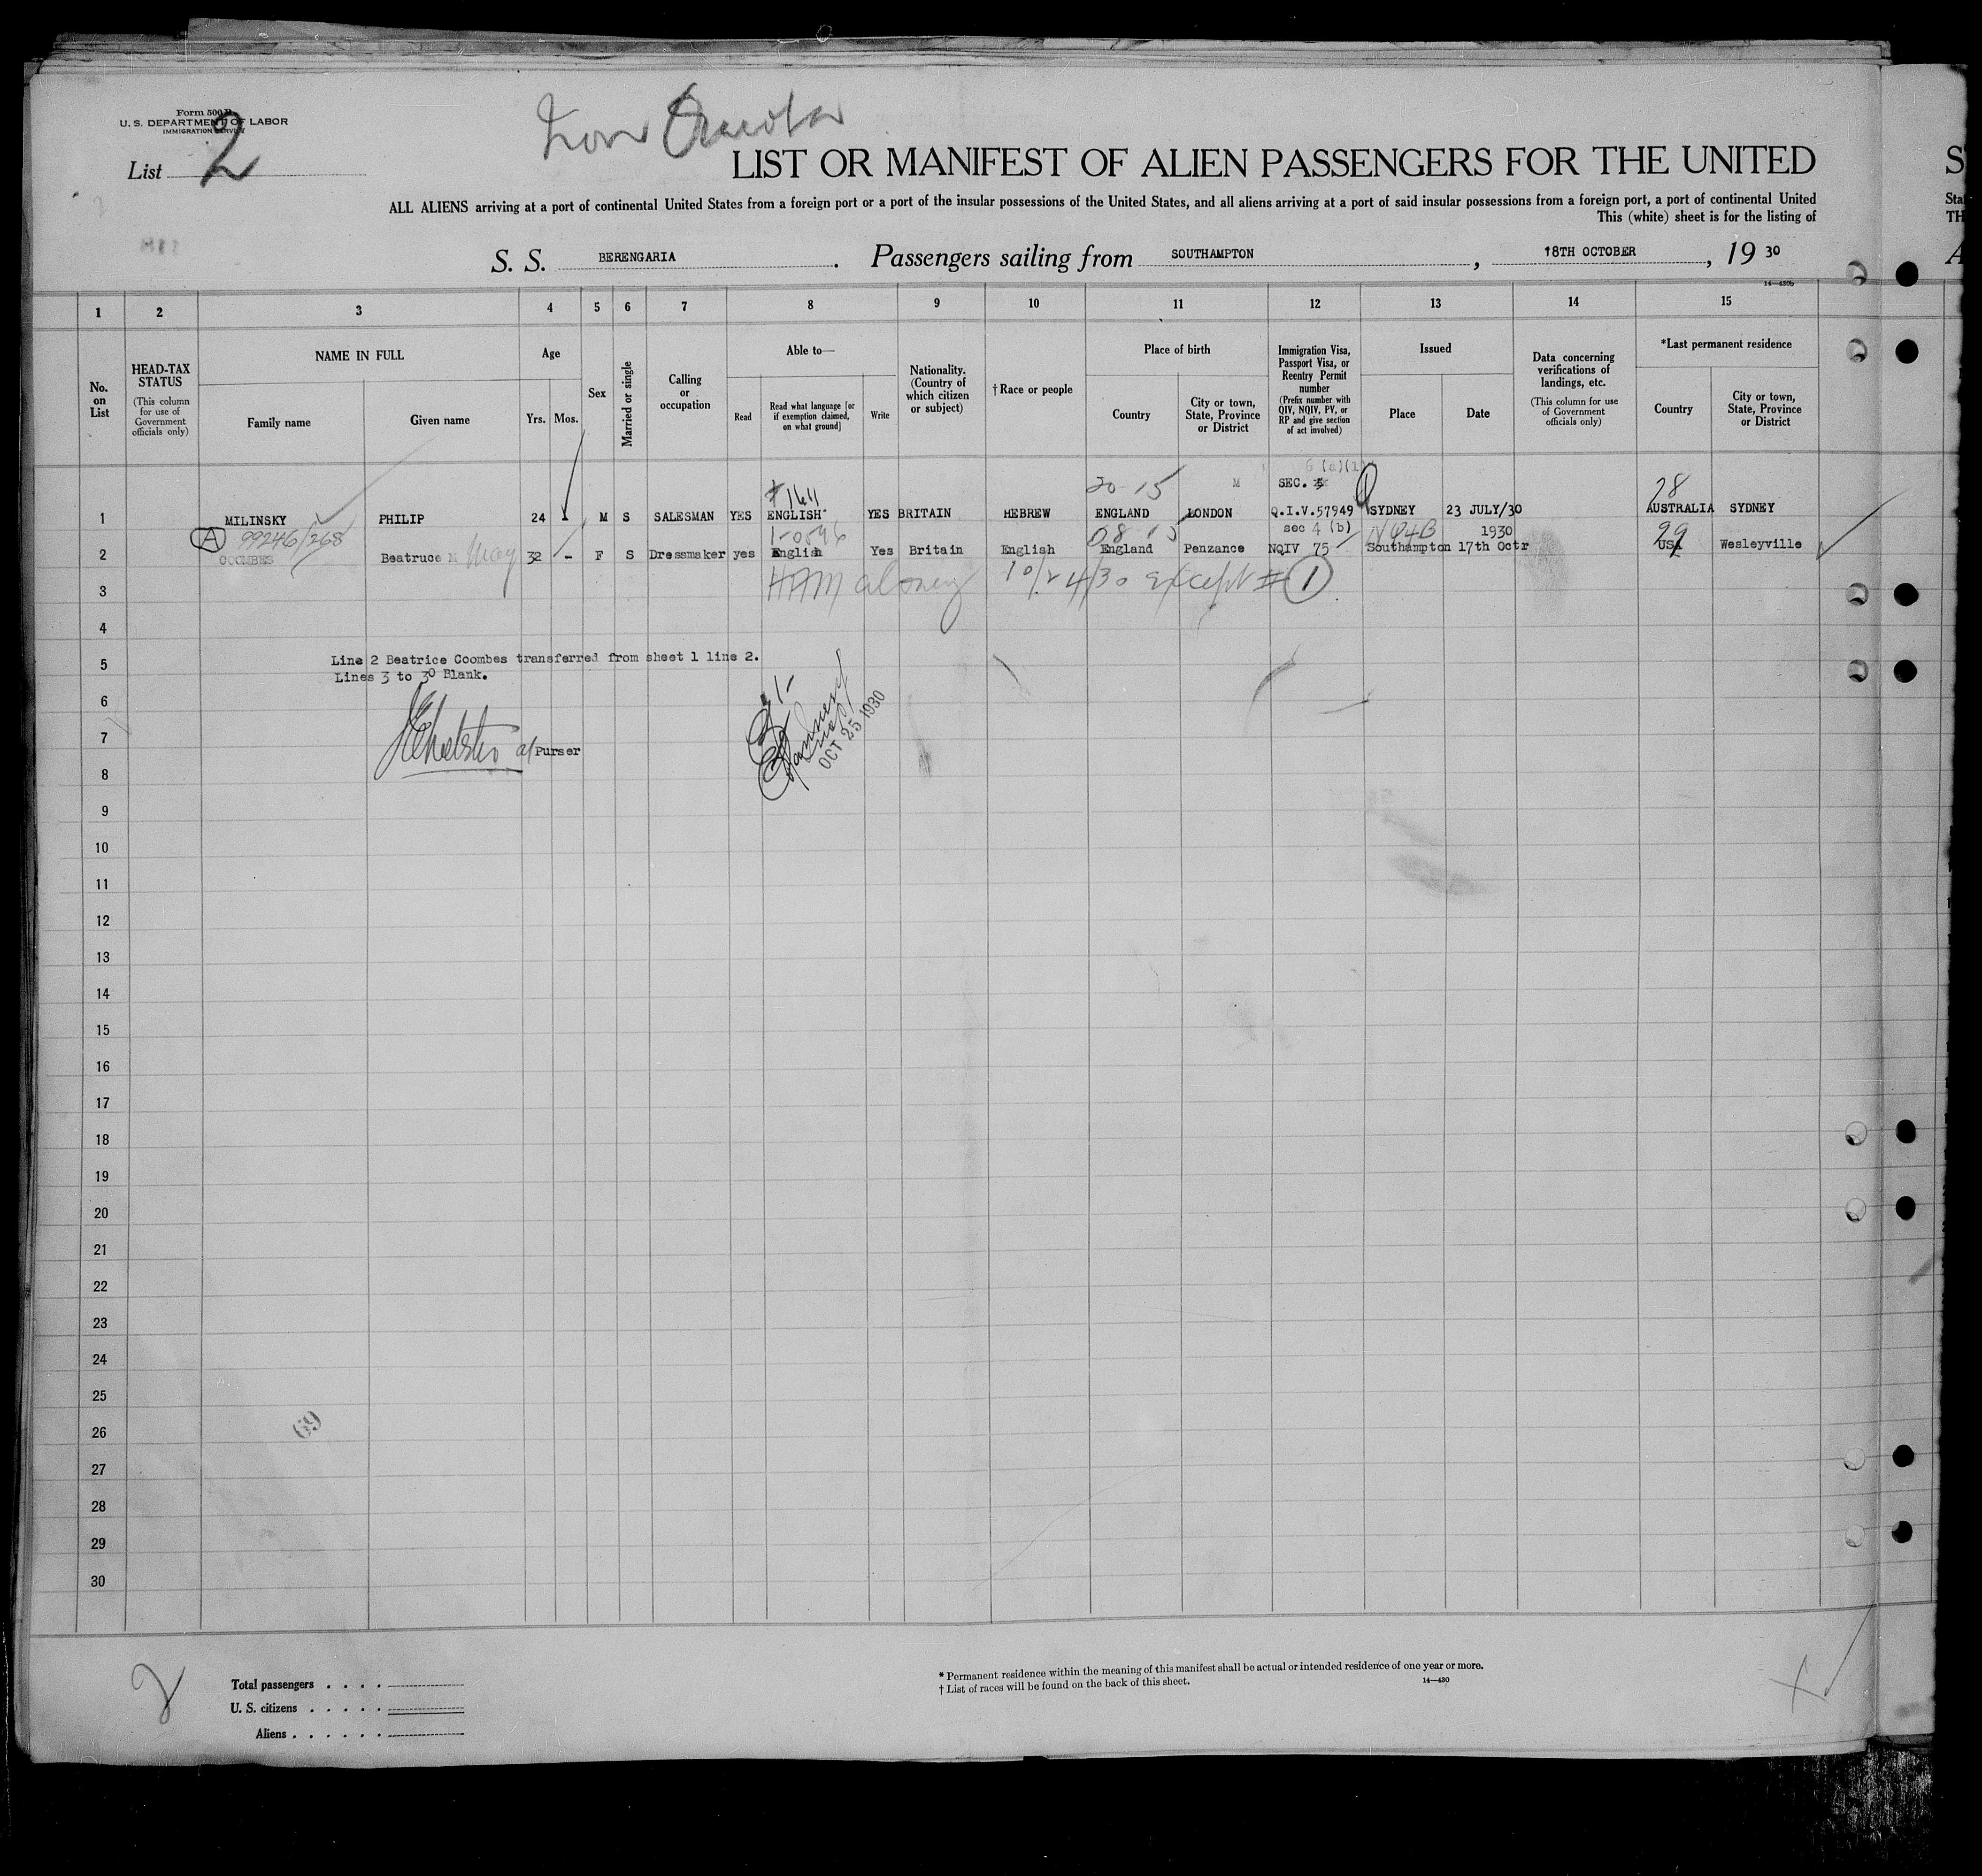 Form 500 B
U. S. DEPARTMENT OF LABOR
IMMIGRATION SERVICE
List 2
LIST OR MANIFEST OF ALIEN PASSENGERS FOR THE UNITED
ALL ALIENS arriving at a port of continental United States from a foreign port or a port of the insular possessions of the United States, and all aliens arriving at a port of said insular possessions from a foreign port, a port of continental United
This (white) sheet is for the listing of
S. S. BERENGARIA. Passengers sailing from SOUTHAMPTON, 18TH OCTOBER, 19 30
14—430b
1 2 3 4 5 6 7 8 9 10 11 12 13 14 15
No. on List
HEAD-TAX STATUS
(This column for use of Government officials only)
NAME IN FULL
Family name
Given name
Age
Yrs.
Mos.
Sex
Married or single
Calling or occupation
Able to—
Read
Read what language [or if exemption claimed, on what ground]
Write
Nationality. (Country of which citizen or subject)
† Race or people
Place of birth
Country
City or town, State, Province or District
Immigration Visa, Passport Visa, or Reentry Permit number
(Prefix number with QIV, NQIV, PV, or RP and give section of act involved)
Issued
Place
Date
Data concerning verifications of landings, etc.
(This column for use of Government officials only)
*Last permanent residence
Country
City or town, State, Province or District
6 (a)(1)
20-15 M SEC. 28
1 MILINSKY PHILIP 24 M S SALESMAN YES ENGLISH YES BRITAIN HEBREW ENGLAND LONDON Q.I.V.57949 SYDNEY 23 JULY/30 AUSTRALIA SYDNEY
A 99246/268 08 15 sec 4 (b) N94B 1930 29
2 COOMBES Beatruce M May 32 - F S Dressmaker yes English Yes Britain English England Penzance NQIV 75 Southampton 17th Octr USA Wesleyville
3 HAMaloney 10/24/30 except # 1
4
5 Line 2 Beatrice Coombes transferred from sheet 1 line 2.
Lines 3 to 30 Blank.
6
7 a/Purser
OCT 25 1930
8
9
10
11
12
13
14
15
16
17
18
19
20
21
22
23
24
25
26
27
28
29
30
(69)
2
Total passengers
U. S. citizens
Aliens
* Permanent residence within the meaning of this manifest shall be actual or intended residence of one year or more.
† List of races will be found on the back of this sheet.
14—430